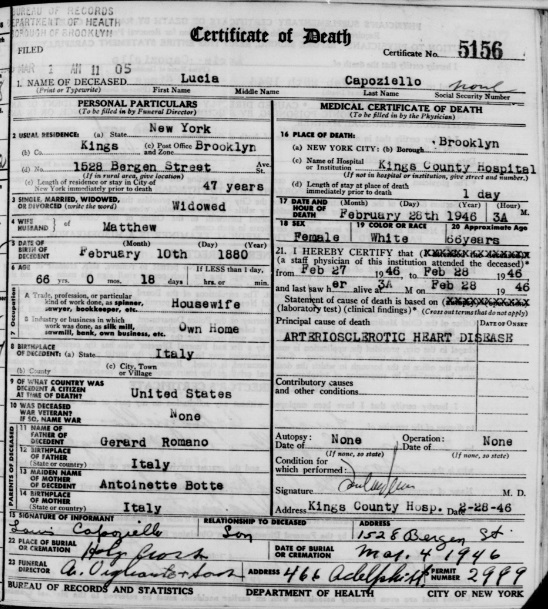 BUREAU OF RECORDS
DEPARTMENT OF HEALTH
BOROUGH OF BROOKLYN
FILED
MAR 1 AM 11 05
Certificate of Death
Certificate No. 5156
1. NAME OF DECEASED Lucia Capoziello none
(Print or Typewrite) First Name Middle Name Last Name Social Security Number
PERSONAL PARTICULARS
(To be filled in by Funeral Director)
2 USUAL RESIDENCE: (a) State New York
(b) Co. Kings (c) Post Office and Zone Brooklyn
(d) No. 1528 Bergen Street Ave. St.
(If in rural area, give location)
(e) Length of residence or stay in City of New York immediately prior to death 47 years
3 SINGLE, MARRIED, WIDOWED, OR DIVORCED (write the word) Widowed
4 WIFE HUSBAND } of Matthew
5 DATE OF BIRTH OF DECEDENT (Month) (Day) (Year)
February 10th 1880
6 AGE If LESS than 1 day,
66 yrs. 0 mos. 18 days hrs. or min.
7 Occupation
A Trade, profession, or particular kind of work done, as spinner, sawyer, bookkeeper, etc. Housewife
B Industry or business in which work was done, as silk mill, sawmill, bank, own business, etc. Own Home
8 BIRTHPLACE OF DECEDENT: (a) State Italy
(b) County (c) City, Town or Village
9 OF WHAT COUNTRY WAS DECEDENT A CITIZEN AT TIME OF DEATH? United States
10 WAS DECEASED WAR VETERAN? IF SO, NAME WAR None
PARENTS OF DECEASED
11 NAME OF FATHER OF DECEDENT Gerard Romano
12 BIRTHPLACE OF FATHER (State or country) Italy
13 MAIDEN NAME OF MOTHER OF DECEDENT Antoinette Botte
14 BIRTHPLACE OF MOTHER (State or country) Italy
MEDICAL CERTIFICATE OF DEATH
(To be filled in by the Physician)
16 PLACE OF DEATH:
(a) NEW YORK CITY: (b) Borough Brooklyn
(c) Name of Hospital or Institution Kings County Hospital
(If not in hospital or institution, give street and number.)
(d) Length of stay at place of death immediately prior to death 1 day
17 DATE AND HOUR OF DEATH (Month) (Day) (Year) (Hour)
February 28th 1946 3A M.
18 SEX 19 COLOR OR RACE 20 Approximate Age
Female White 66years
21. I HEREBY CERTIFY that
(a staff physician of this institution attended the deceased)*
from Feb 27 1946 to Feb 28 1946
and last saw her alive at 3A M on Feb 28 1946
Statement of cause of death is based on
(laboratory test) (clinical findings)* (Cross out terms that do not apply)
Principal cause of death DATE OF ONSET
ARTERIOSCLEROTIC HEART DISEASE
Contributory causes and other conditions
Autopsy: Date of None Operation: Date of None
(If none, so state) (If none, so state)
Condition for which performed:
Signature M. D.
Address Kings County Hosp. Date 2-28-46
SIGNATURE OF INFORMANT RELATIONSHIP TO DECEASED ADDRESS
Louis Capoziello Son 1528 Bergen St
22 PLACE OF BURIAL OR CREMATION Holy Cross DATE OF BURIAL OR CREMATION Mar. 4 1946
23 FUNERAL DIRECTOR ADDRESS 466 Adelphi St PERMIT NUMBER 2999
BUREAU OF RECORDS AND STATISTICS DEPARTMENT OF HEALTH CITY OF NEW YORK